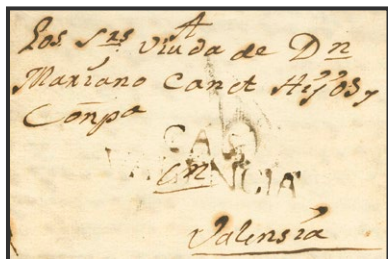 A
Los S.res Viuda de Dn
Mariano Canet Hijos y
Compa
en
VALENCIA
Valensia